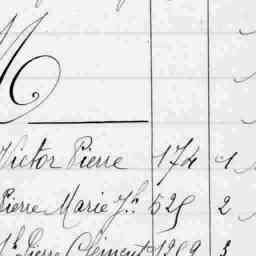 N
Victor Pierre 174 1
Pierre Marie Jh. 525 2
Pierre Clément 1209 3